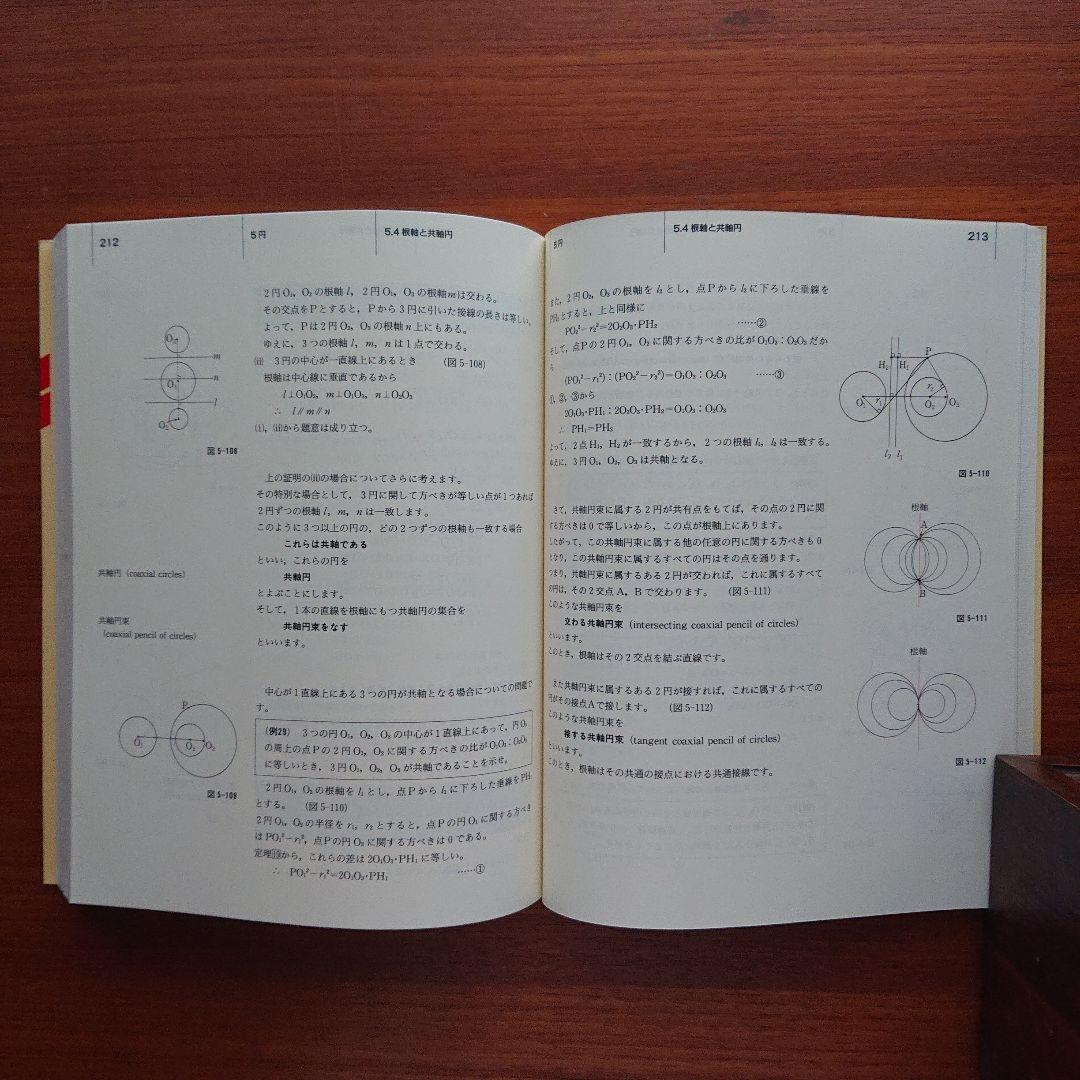 212
5 円
5.4 根軸と共軸円
2 円 O₁, O₂ の根軸 l, 2 円 O₂, O₃ の根軸 m は交わる。
その交点を P とすると, P から 3 円に引いた接線の長さは等しい。
よって, P は 2 円 O₂, O₃ の根軸 n 上にもある。
ゆえに, 3 つの根軸 l, m, n は 1 点で交わる。
(ii) 3 円の中心が一直線上にあるとき (図 5-108)
根軸は中心線に垂直であるから
∴ l∥m∥n
(i), (ii)から題意は成り立つ。
O₃
m
n
O₁
l
O₂
図 5-108
上の証明の(ii)の場合についてさらに考えます。
その特別な場合として, 3 円に関して方べきが等しい点が 1 つあれば
2 円ずつの根軸 l, m, n は一致します。
このように 3 つ以上の円の, どの 2 つずつの根軸も一致する場合
これらは共軸である
といい, これらの円を
共軸円
とよぶことにします。
そして, 1 本の直線を根軸にもつ共軸円の集合を
共軸円束をなす
といいます。
共軸円 (coaxial circles)
共軸円束
(coaxial pencil of circles)
中心が 1 直線上にある 3 つの円が共軸となる場合についての問題で
す。
(例29) 3 つの円 O₁, O₂, O₃ の中心が 1 直線上にあって, 円 O₃
の周上の点 P の 2 円 O₁, O₂ に関する方べきの比が O₁O₃:O₂O₃
に等しいとき, 3 円 O₁, O₂, O₃ が共軸であることを示せ。
P
O₁
O₂
O₃
図 5-109
2 円 O₁, O₃ の根軸を l₁ とし, 点 P から l₁ に下ろした垂線を PH₁
とする。 (図 5-110)
2 円 O₁, O₂ の半径を r₁, r₂ とすると, 点 P の円 O₁ に関する方べき
は PO₁²−r₁², 点 P の円 O₃ に関する方べきは 0 である。
から, これらの差は 2O₁O₃・PH₁ に等しい。
∴ PO₁²−r₁²=2O₁O₃・PH₁ ……①
5 円
5.4 根軸と共軸円
213
また, 2 円 O₂, O₃ の根軸を l₂ とし, 点 P から l₂ に下ろした垂線を
PH₂ とすると, 上と同様に
PO₂²−r₂²=2O₂O₃・PH₂ ……②
そして, 点 P の 2 円 O₁, O₂ に関する方べきの比が O₁O₃:O₂O₃ だか
ら
(PO₁²−r₁²):(PO₂²−r₂²)=O₁O₃:O₂O₃ ……③
①, ②, ③から
2O₁O₃・PH₁:2O₂O₃・PH₂=O₁O₃:O₂O₃
∴ PH₁=PH₂
よって, 2 点 H₁, H₂ が一致するから, 2 つの根軸 l₁, l₂ は一致する。
ゆえに, 3 円 O₁, O₂, O₃ は共軸となる。
P
H₂
H₁
r₂
O₁
r₁
O₂
O₃
l₂ l₁
図 5-110
さて, 共軸円束に属する 2 円が共有点をもてば, その点の 2 円に関
する方べきは 0 で等しいから, この点が根軸上にあります。
したがって, この共軸円束に属する他の任意の円に関する方べきも 0
となり, この共軸円束に属するすべての円はその点を通ります。
つまり, 共軸円束に属するある 2 円が交われば, これに属するすべて
の円は, その 2 交点 A, B で交わります。 (図 5-111)
このような共軸円束を
交わる共軸円束 (intersecting coaxial pencil of circles)
といいます。
このとき, 根軸はその 2 交点を結ぶ直線です。
根軸
A
B
図 5-111
また共軸円束に属するある 2 円が接すれば, これに属するすべての
円がその接点 A で接します。 (図 5-112)
このような共軸円束を
接する共軸円束 (tangent coaxial pencil of circles)
といいます。
このとき, 根軸はその共通の接点における共通接線です。
根軸
図 5-112